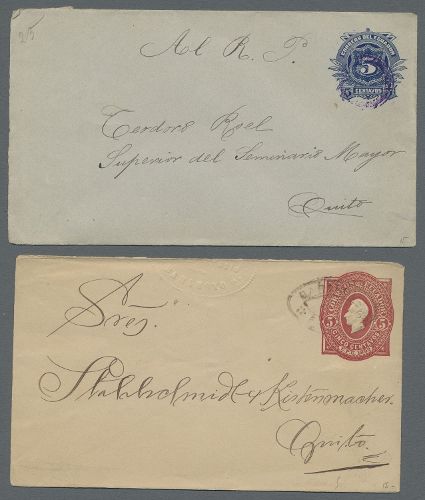 25
Al R. P.
CORREOS DEL ECUADOR
5
CENTAVOS
Teodoro Roel
Superior del Seminario Mayor
Quito
15
Sres.
5 5
CINCO CENTAVOS
Stahlschmidt y Kistenmacher.
Quito.
15 -